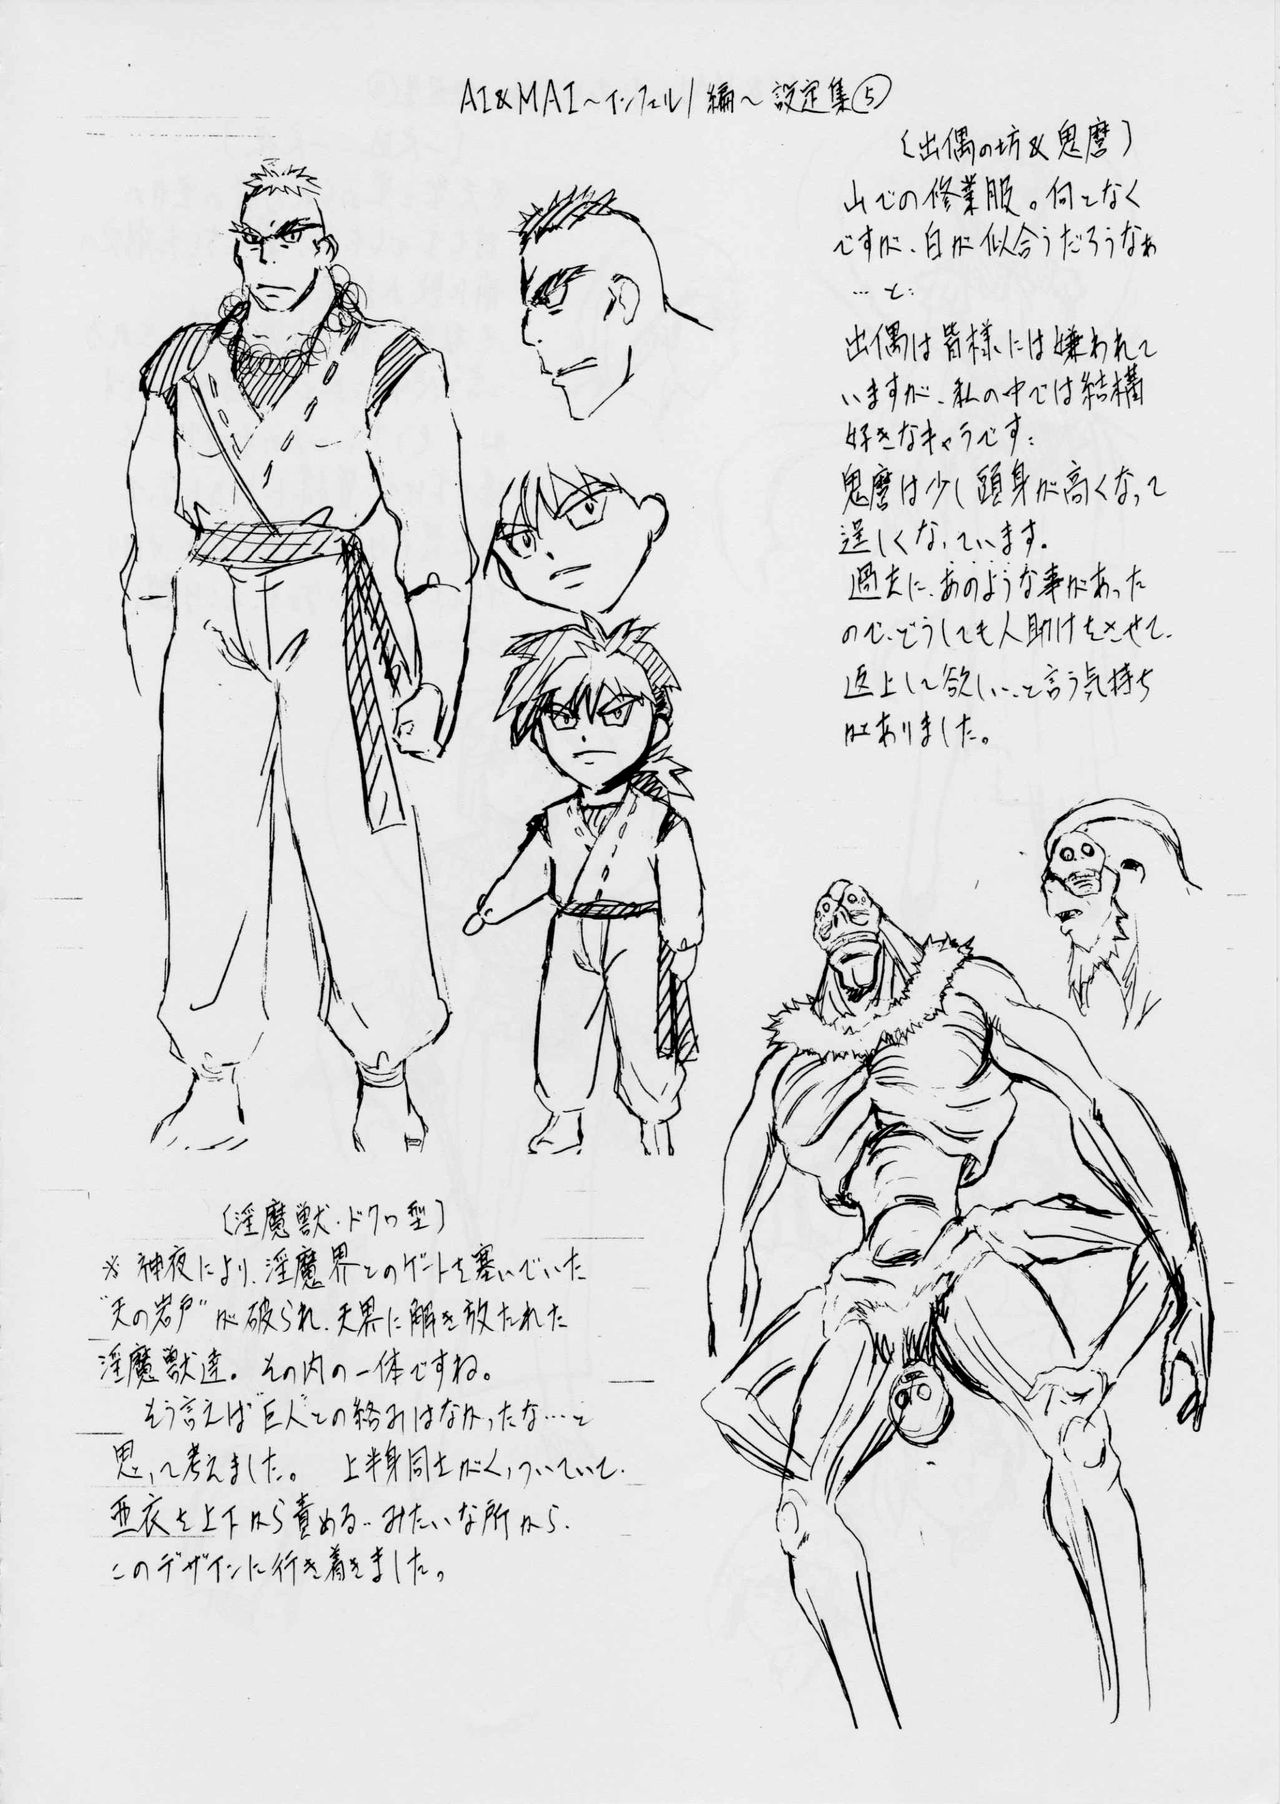 AI&MAI〜インフェルノ編〜設定集⑤
〔出偶の坊&鬼麿〕
山での修業服。何となく
ですが、白が似合うだろうなぁ
…と。
出偶は皆様には嫌われて
いますが、私の中では結構
好きなキャラです。
鬼麿は少し頭身が高くなって
逞しくなっています。
過去に、あのような事があった
ので、どうしても人助けをさせて、
返上して欲しい…と言う気持ち
がありました。
〔淫魔獣・ドクロ型〕
※神夜により、淫魔界とのゲートを塞いでいた
"天の岩戸"が破られ、天界に解き放たれた
淫魔獣達。その内の一体ですね。
もう言えば"巨人"との絡みはなかったな…と
思って考えました。上半身同士がくっついていて、
亜衣を上下から責める…みたいな所から、
このデザインに行き着きました。